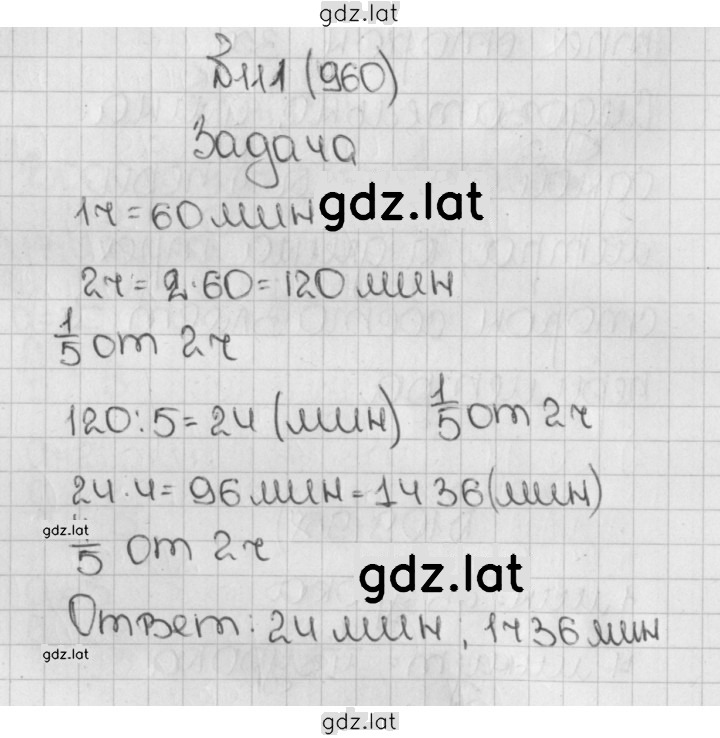 gdz.lat
В 111 (960)
Задача
1ч = 60 мин
gdz.lat
2ч = 2·60 = 120 мин
1/5 от 2ч
120:5 = 24 (мин) 1/5 от 2ч
24·4 = 96 мин = 1ч 36 (мин)
gdz.lat
/5 от 2ч
gdz.lat
Ответ: 24 мин, 1ч 36 мин
gdz.lat
gdz.lat